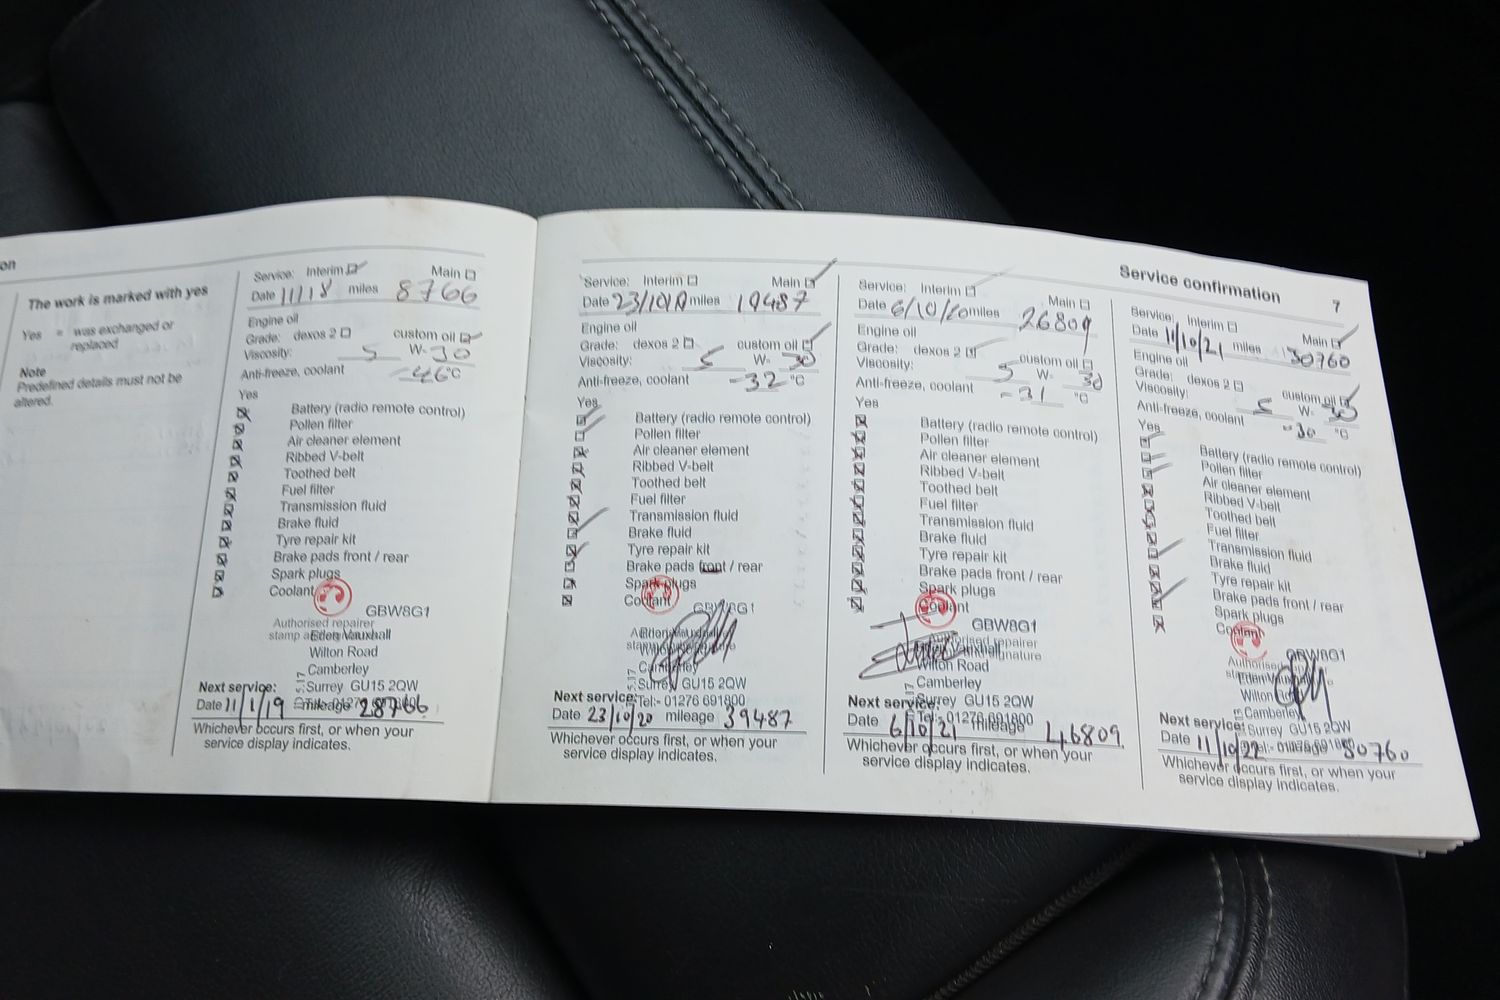 on
The work is marked with yes
Yes = was exchanged or
replaced
Note
Predefined details must not be
altered.
Service: Interim Main
Date 11118 miles 8766
Engine oil
Grade: dexos 2 custom oil
Viscosity: 5 W- 30
Anti-freeze, coolant -46°C
Yes
Battery (radio remote control)
Pollen filter
Air cleaner element
Ribbed V-belt
Toothed belt
Fuel filter
Transmission fluid
Brake fluid
Tyre repair kit
Brake pads front / rear
Spark plugs
Coolant
GBW8G1
Authorised repairer
stamp Eden Vauxhall
Wilton Road
Camberley
Surrey GU15 2QW
Next service:
Date 11/1/19 mileage 28766
Whichever occurs first, or when your
service display indicates.
Service: Interim Main
Date 23/10/ miles 19487
Engine oil
Grade: dexos 2 custom oil
Viscosity: 5 W- 30
Anti-freeze, coolant -32 °C
Yes
Battery (radio remote control)
Pollen filter
Air cleaner element
Ribbed V-belt
Toothed belt
Fuel filter
Transmission fluid
Brake fluid
Tyre repair kit
Brake pads front / rear
Spark plugs
Coolant
GBW8G1
Camberley
Surrey GU15 2QW
Next service: Tel:- 01276 691800
Date 23/10/20 mileage 39487
Whichever occurs first, or when your
service display indicates.
Service confirmation 7
Service: Interim Main
Date 6/10/20 miles 26809
Engine oil
Grade: dexos 2 custom oil
Viscosity: 5 W- 30
Anti-freeze, coolant -31 °C
Yes
Battery (radio remote control)
Pollen filter
Air cleaner element
Ribbed V-belt
Toothed belt
Fuel filter
Transmission fluid
Brake fluid
Tyre repair kit
Brake pads front / rear
Spark plugs
Coolant
GBW8G1
Wilton Road
Camberley
Surrey GU15 2QW
Next service: Tel:- 01276 691800
Date 6/10/21 mileage 46809
Whichever occurs first, or when your
service display indicates.
Service: Interim Main
Date 11/10/21 miles 30760
Engine oil
Grade: dexos 2 custom oil
Viscosity: 5 W- 30
Anti-freeze, coolant -30 °C
Yes
Battery (radio remote control)
Pollen filter
Air cleaner element
Ribbed V-belt
Toothed belt
Fuel filter
Transmission fluid
Brake fluid
Tyre repair kit
Brake pads front / rear
Spark plugs
Coolant
GBW8G1
Authorised
Eden
Wilton
Camberley
Surrey GU15 2QW
Next service:
Date 11/10/22 50760
Whichever occurs first, or when your
service display indicates.